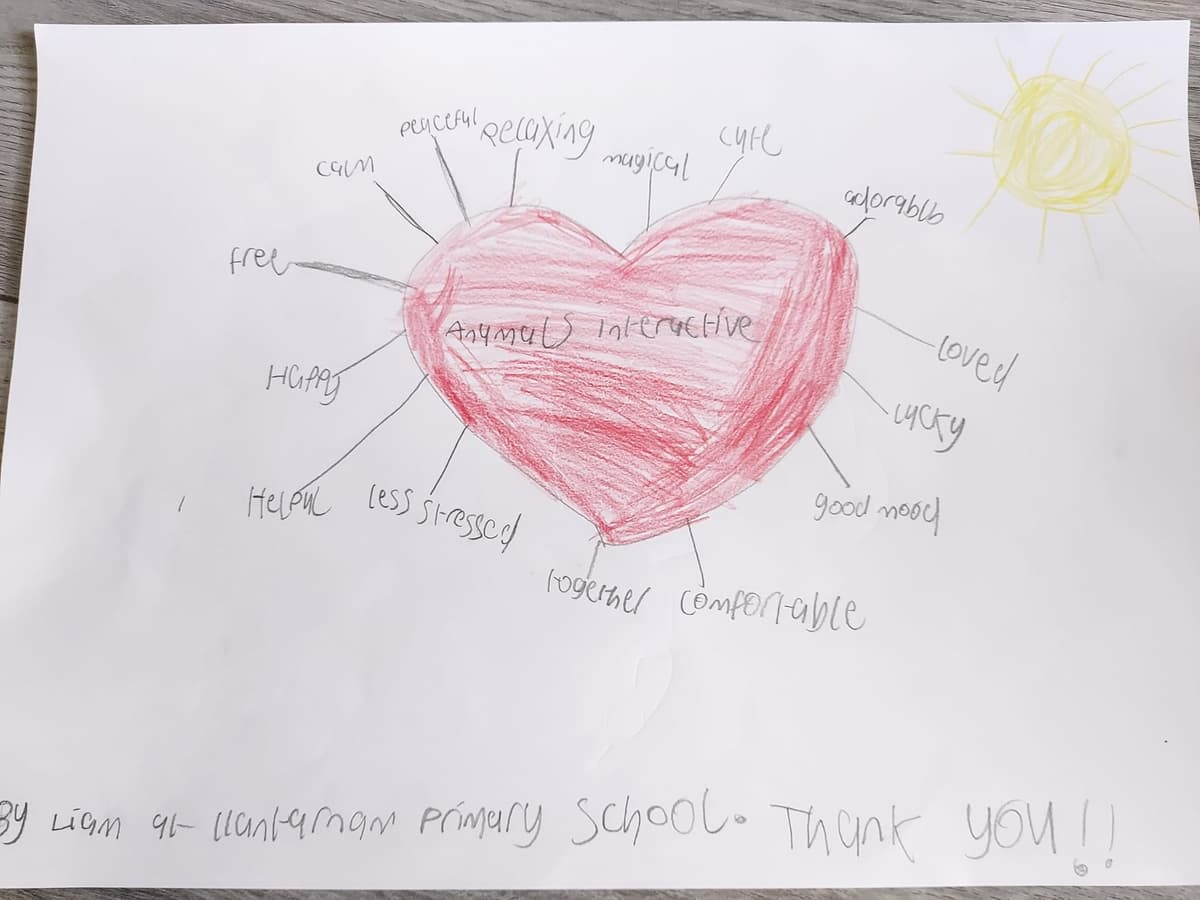 peaceful
Relaxing
cute
magical
calm
adorablb
free
Anymals interactive
loved
Happy
lucky
Helpul
less stressed
good mood
together
comfortable
By Liam at llantarnam primary school. Thank you!!